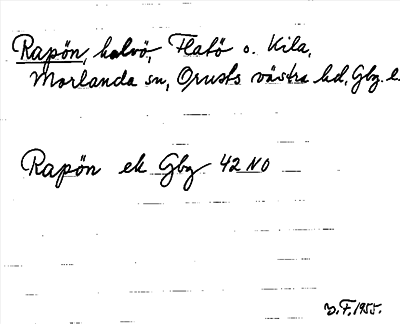 Rapön, halvö, Flatö o. Kila,
Morlanda sn, Orusts västra hd, Gbg. l.
Rapön ek Gbg 42 NO
D.F. 1955.